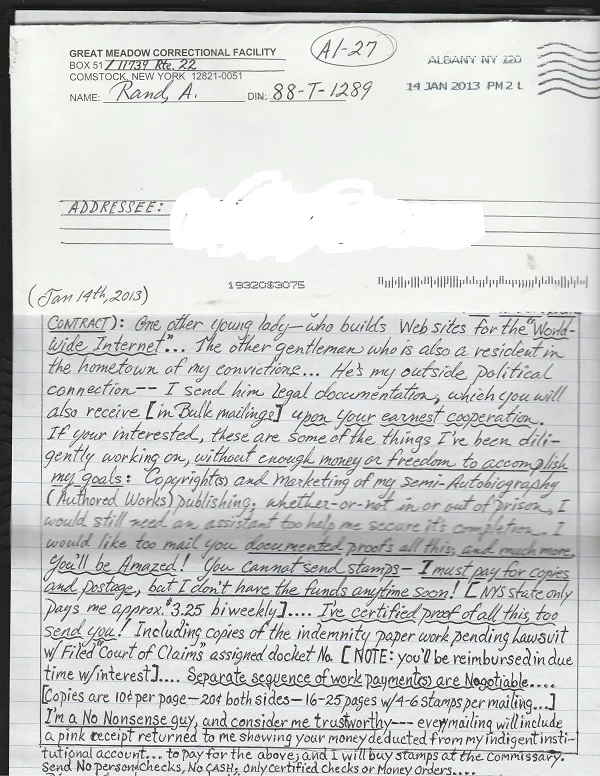 GREAT MEADOW CORRECTIONAL FACILITY
BOX 51 / 11739 Rte. 22
COMSTOCK, NEW YORK 12821-0051
NAME: Rand, A. DIN: 88-T-1289
A1-27
ALBANY NY 120
14 JAN 2013 PM 2 L
ADDRESSEE:
19320$3075
(Jan 14th, 2013)
CONTRACT): One other young lady—who builds Web sites for the "World-
wide Internet"... The other gentleman who is also a resident in
the hometown of my convictions... He's my outside political
connection-- I send him legal documentation, which you will
also receive [in Bulk mailings] upon your earnest cooperation.
If your interested, these are some of the things I've been dili-
gently working on, without enough money or freedom to accomplish
my goals: Copyright(s) and marketing of my semi-Autobiography
(Authored Works) publishing, whether-or-not in or out of prison, I
would still need an assistant too help me secure it's completion. I
would like too mail you documented proofs all this, and much more,
You'll be Amazed! You cannot send stamps- I must pay for copies
and postage, but I don't have the funds anytime soon! [NYS state only
pays me approx. $3.25 biweekly].... I've certified proof of all this, too
send you! Including copies of the indemnity paper work pending Lawsuit
w/ Filed "Court of Claims" assigned docket No. [NOTE: you'll be reimbursed in due
time w/interest].... Separate sequence of work payment(s) are Negotiable....
[Copies are 10¢ per page—20¢ both sides-16-25 pages w/4-6 stamps per mailing...]
I'm a No Nonsense guy, and consider me trustworthy--- every mailing will include
a pink receipt returned to me showing your money deducted from my indigent insti-
tutional account... to pay for the above; and I will buy stamps at the Commissary.
Send No person checks, No CASH, only Certified Checks or Money Orders....